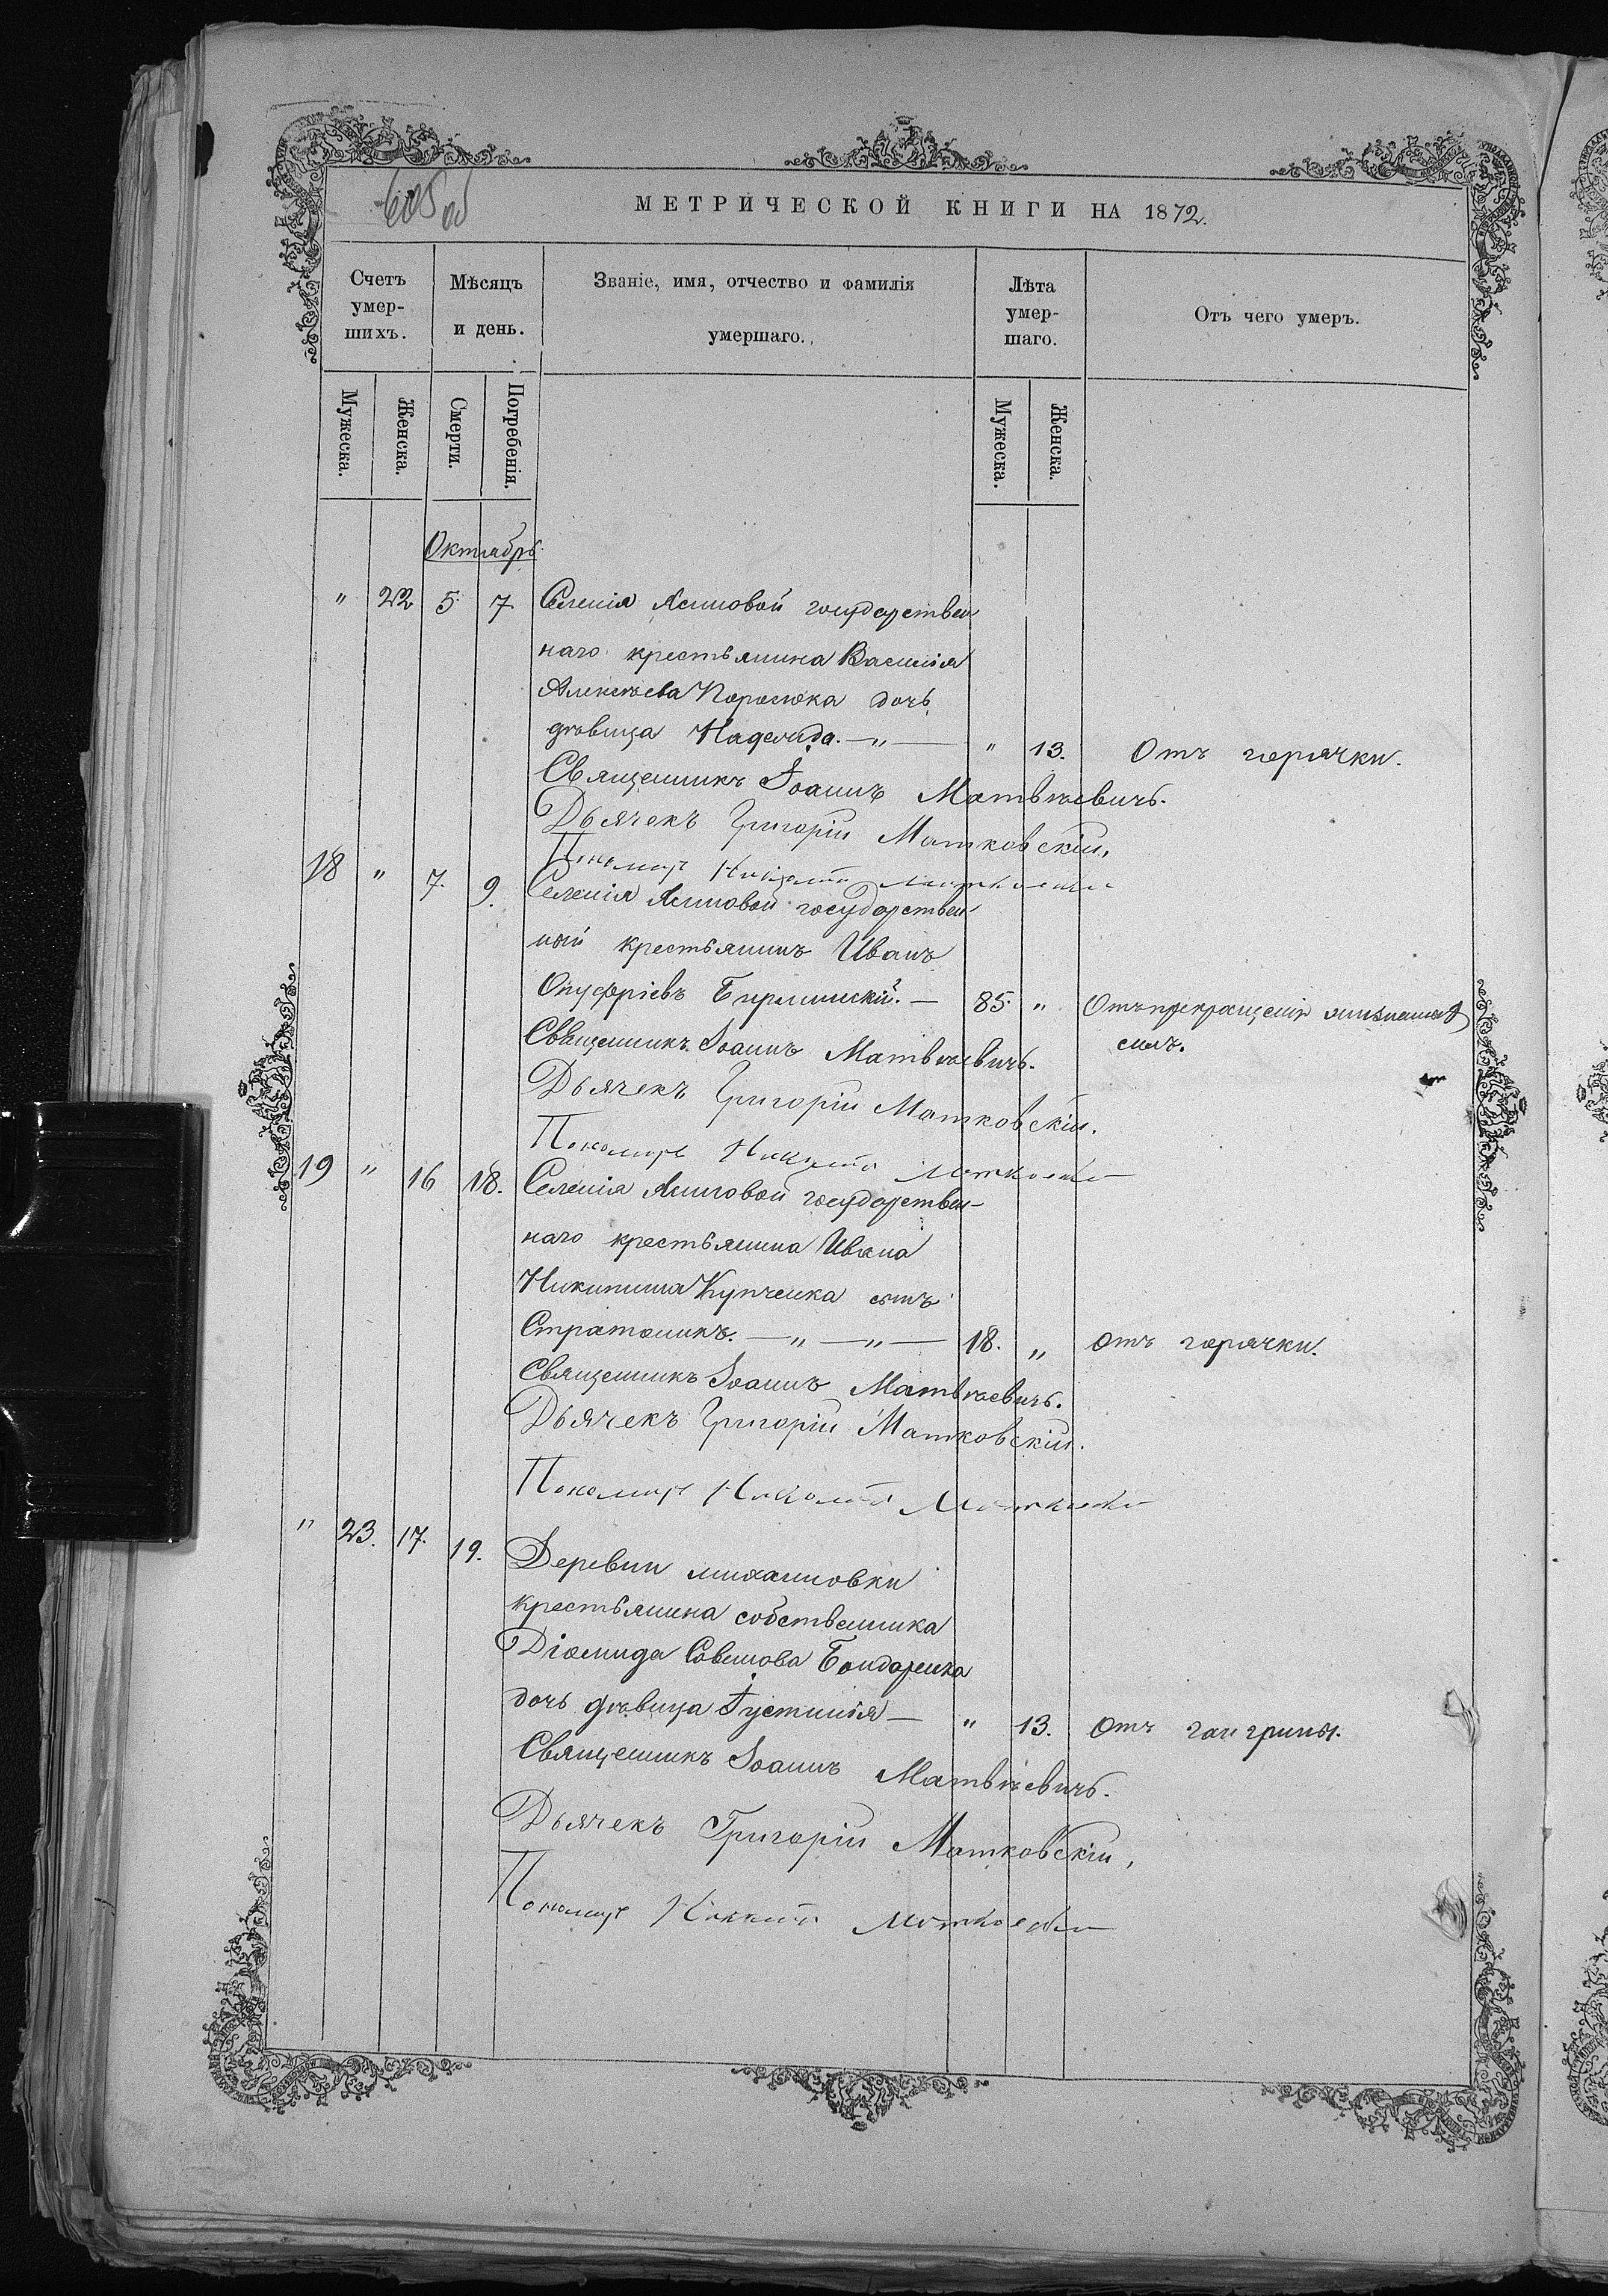 605 об
МЕТРИЧЕСКОЙ КНИГИ НА 1872.
Счетъ умер-шихъ.
Мѣсяцъ и день.
Званіе, имя, отчество и фамилія умершаго.
Лѣта умер-шаго.
Отъ чего умеръ.
Мужеска. Женска. Смерти. Погребенія. Мужеска. Женска.
Октябрь
" 22 5 7. Селенія Ясиновой государствен
наго крестьянина Василія
Алексѣева Поросюка дочь
дѣвица Надежда. — " — " 13. Отъ горячки.
Священникъ Іоаннъ Матвѣевичъ.
Дьячекъ Григорій Матковскій,
Пономарь
18 " 7. 9. Селенія Ясиновой государствен-
ный крестьянинъ Иванъ
Онуфріевъ — 85. " Отъ прекращенія жизненныхъ
силъ.
Священникъ Іоаннъ Матвѣевичъ.
Дьячекъ Григорій Матковскій.
Пономарь
19 " 16 18. Селенія Ясиновой государствен-
наго крестьянина Ивана
Купченка сынъ
Стратоникъ. — " — " — 18. " отъ горячки.
Священникъ Іоаннъ Матвѣевичъ.
Дьячекъ Григорій Матковскій.
Пономарь
" 23. 17. 19. Деревни михайловки
крестьянина собственника
Діомида Савинова Бондаренка
дочь дѣвица Іустинія — " 13. Отъ гангрины.
Священникъ Іоаннъ Матвѣевичъ.
Дьячекъ Григорій Матковскій,
Пономарь